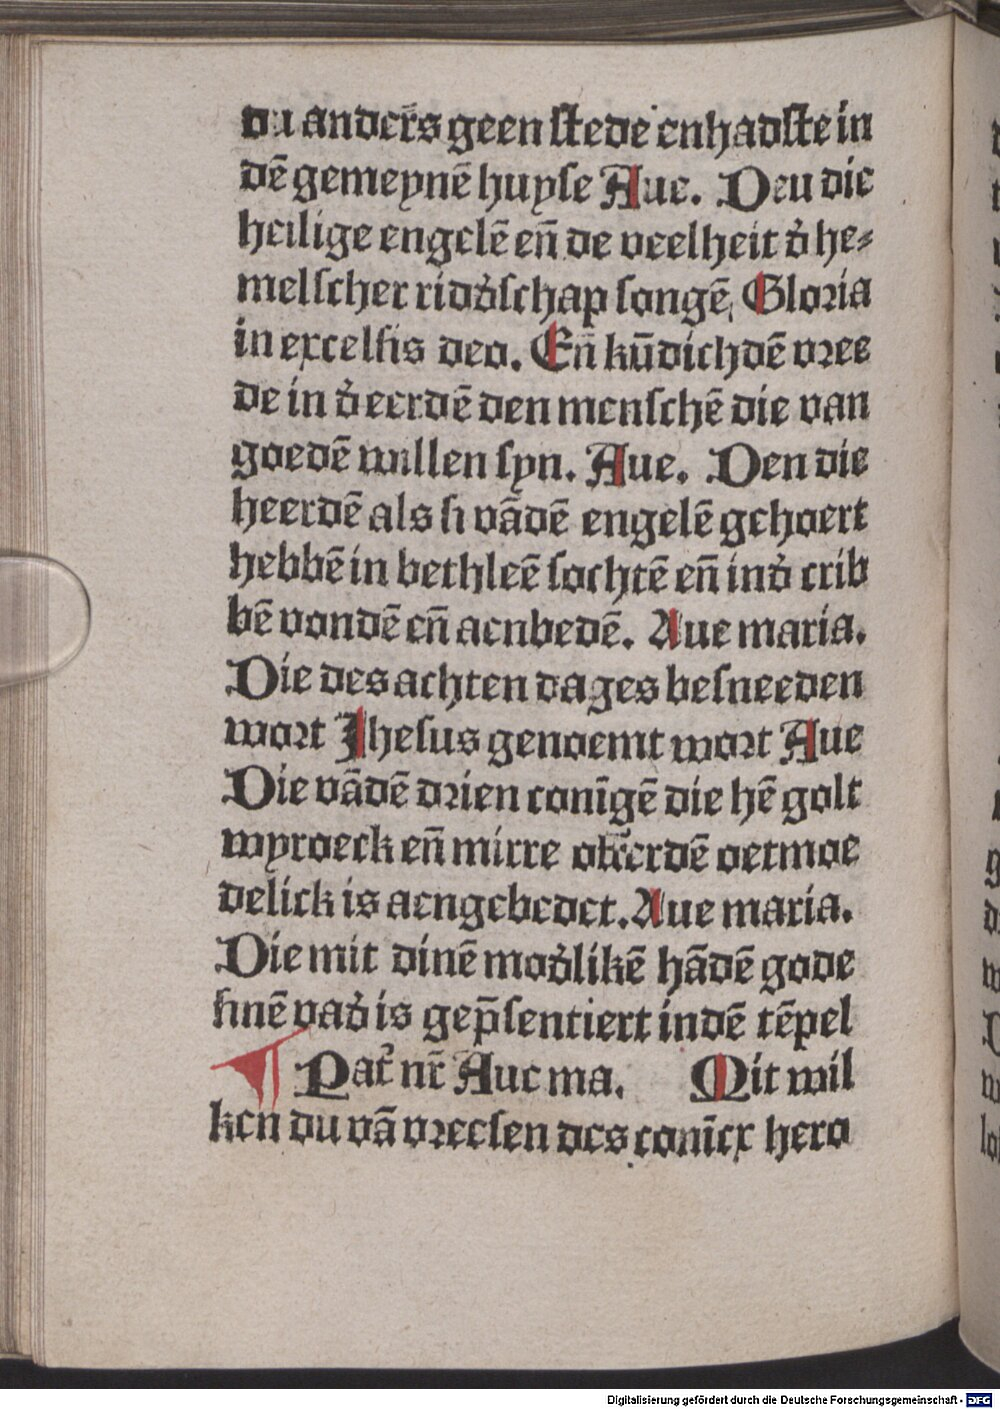 du anders geen stede enhadste in
dē gemeynē huyse Aue. Den die
heilige engelē eñ de veelheit d̕ he⸗
melscher ridd̕schap songē, Gloria
in excelsis deo. Eñ kūdichdē vree
de in d̕ eerdē den menschē die van
goedē willen syn. Aue. Den die
heerdē als si vādē engelē gehoert
hebbē in bethleē sochtē eñ ind̕ crib
bē vondē eñ aenbedē. Aue maria.
Die des achten dages besneeden
wort Jhesus genoemt wort Aue
Die vādē drien conīgē die hē golt
wyroeck eñ mirre offerdē oetmoe
delick is aengebedet. Aue maria.
Die mit dinē mod̕likē hādē gode
sinē vad̕ is gep̄sentiert indē tēpel
Pat̕ nr̄ Aue ma. Mit wil
ken du vā vreesen des conīcx hero
Digitalisierung gefördert durch die Deutsche Forschungsgemeinschaft - DFG